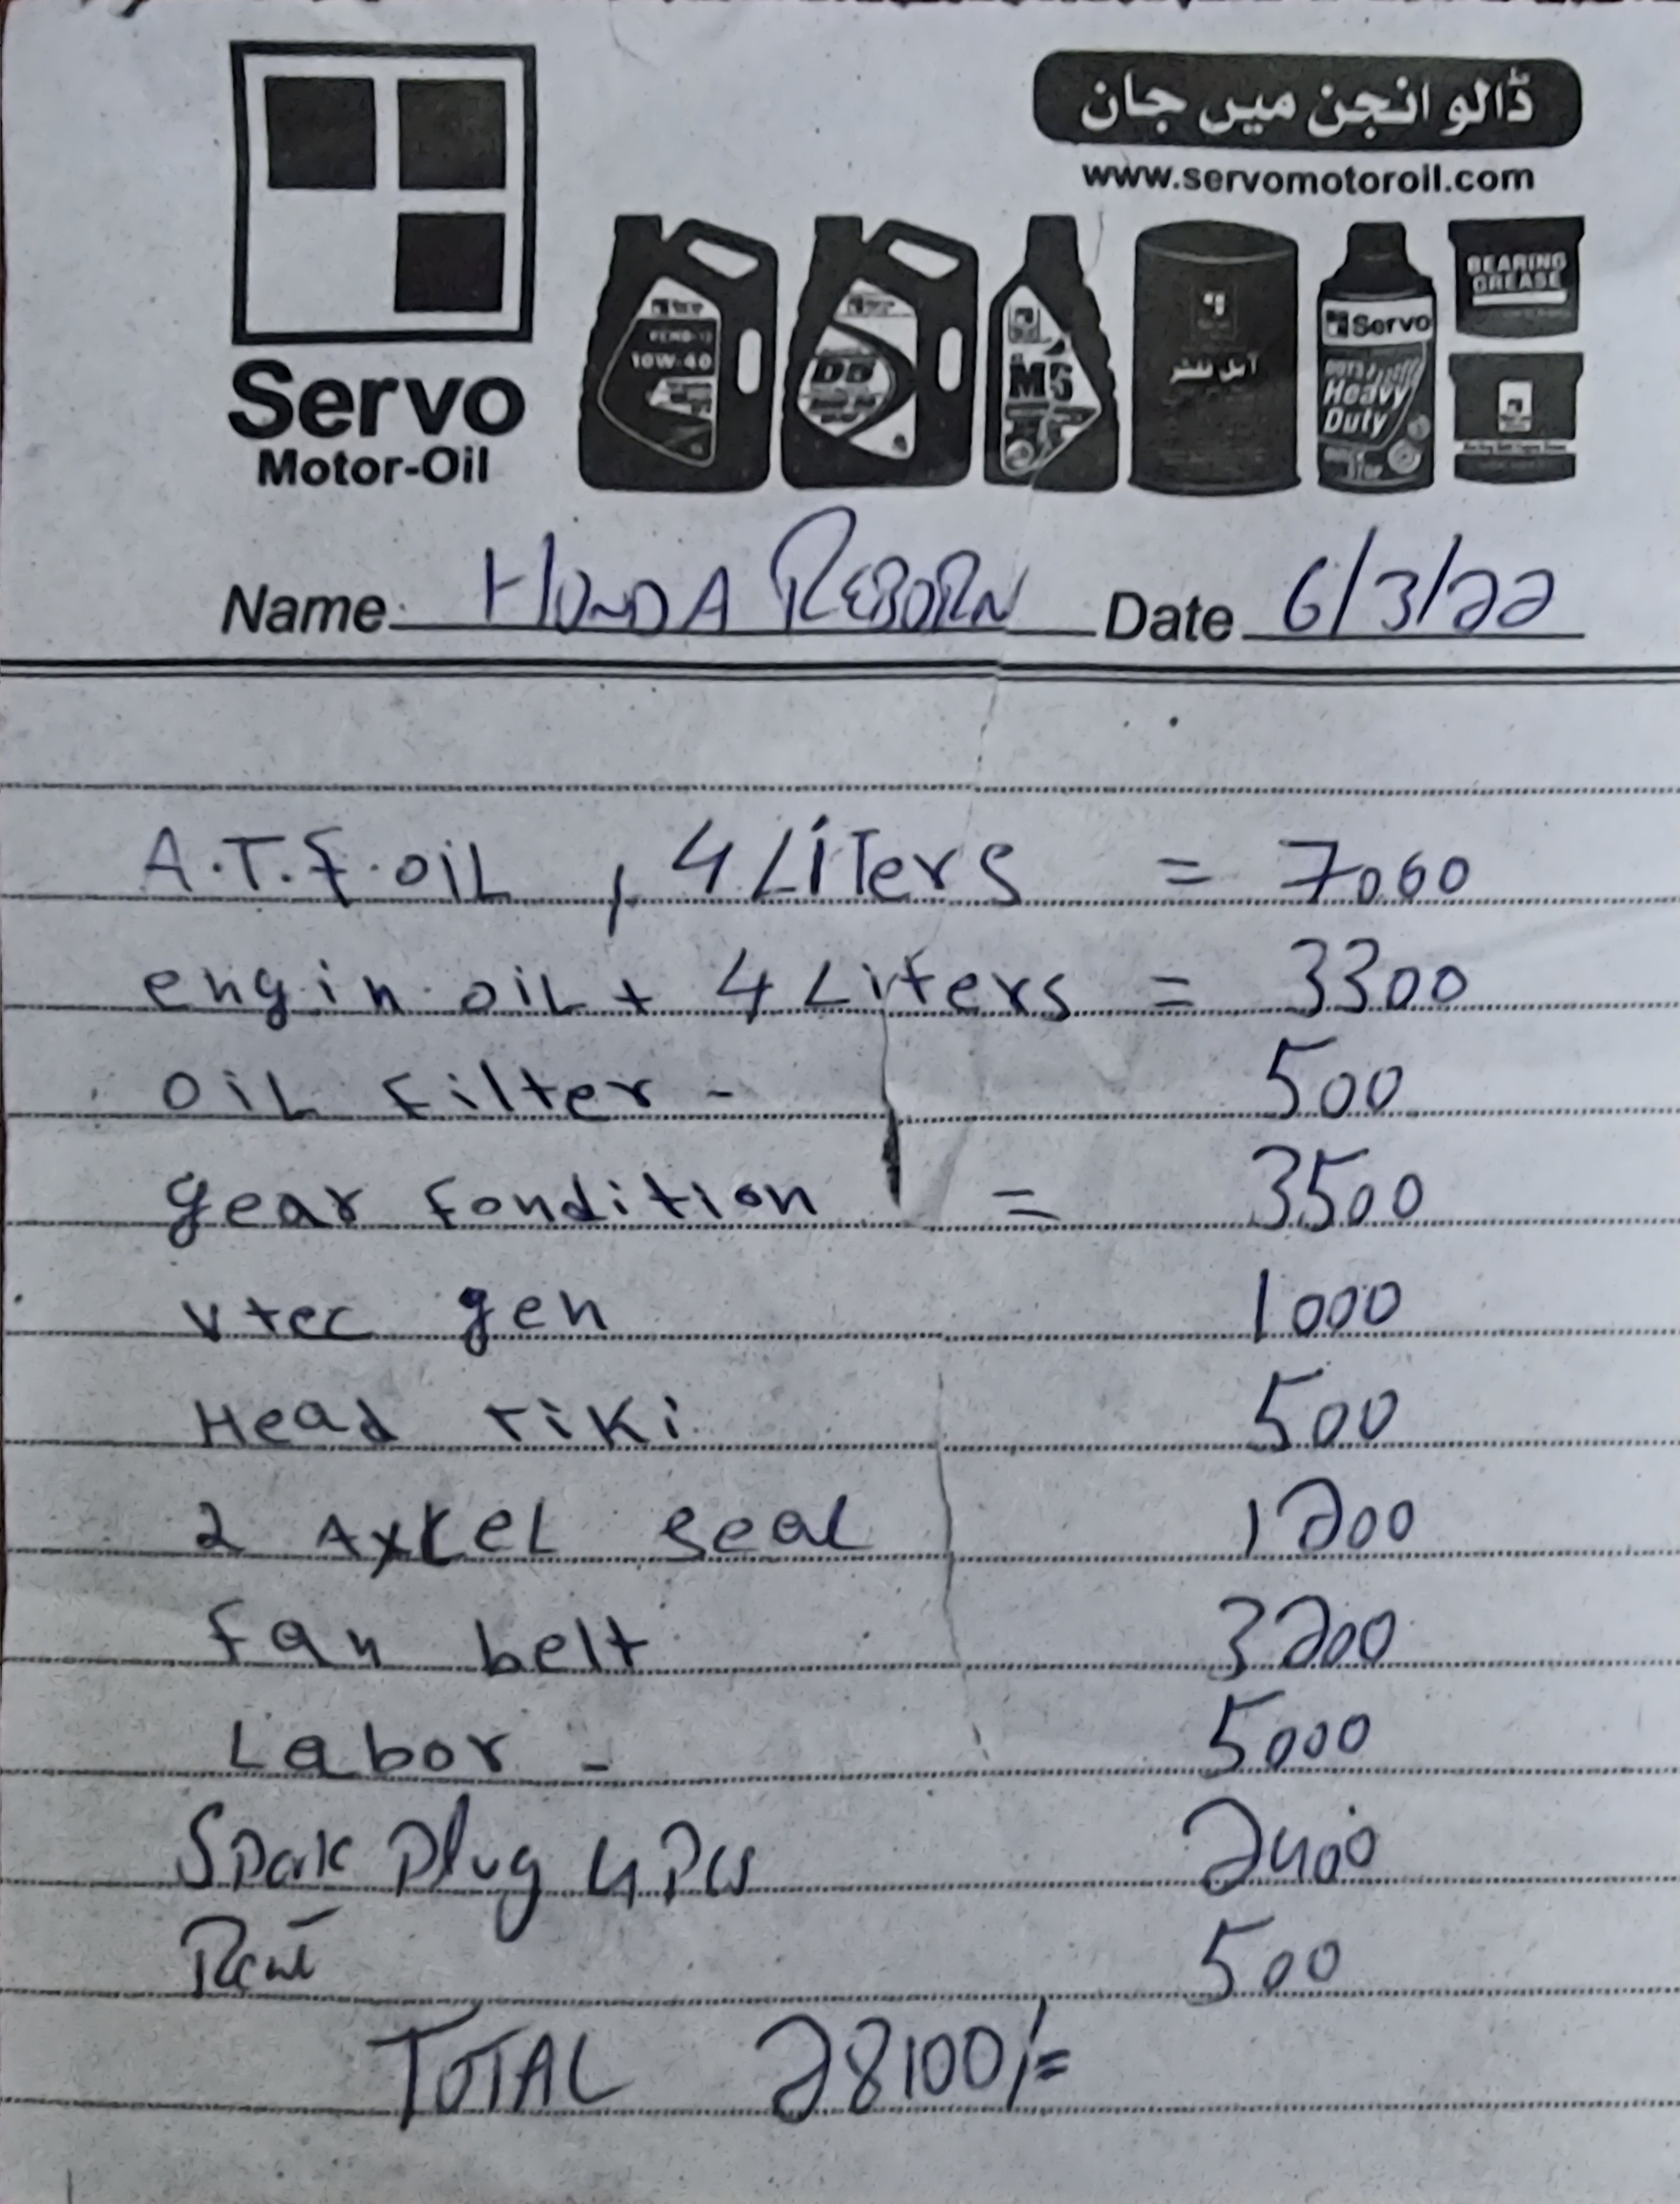 ڈالو انجن میں جان
www.servomotoroil.com
Servo
Motor-Oil
10W-40
DD
M5
آئل فلٹر
Servo
Heavy
Duty
BEARING
GREASE
Name HONDA REBORN Date 6/3/22
A.T.f.oiL , 4 LiTers = 7000
engin oiL + 4 Liters = 3300
OiL filter - 500
gear fondition = 3500
vtec gen 1000
Head riki 500
2 AxceL seal 1200
fan belt 3200
Labor - 5000
Spark Plug 4 Pcs 2400
Rent 500
TOTAL 28100/=